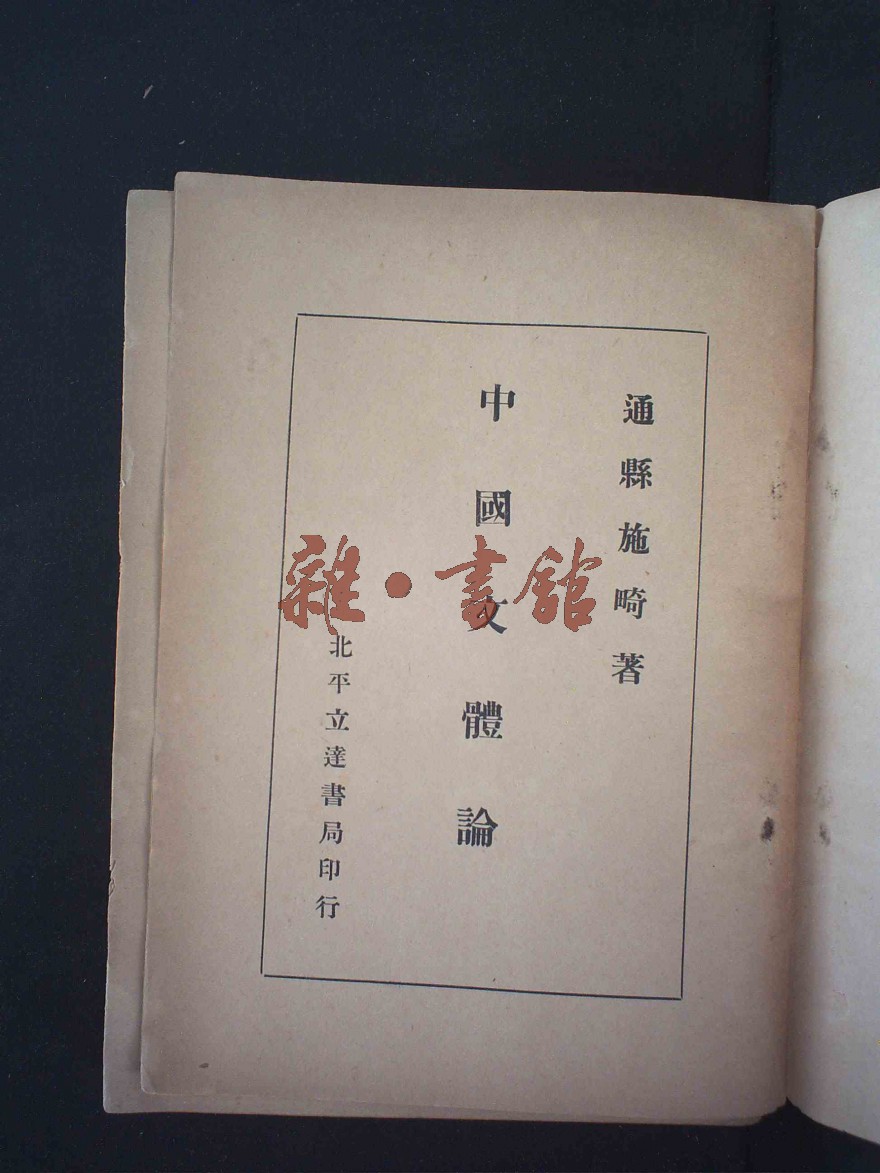 通縣施畸著
中國文體論
北平立達書局印行
雜·書館